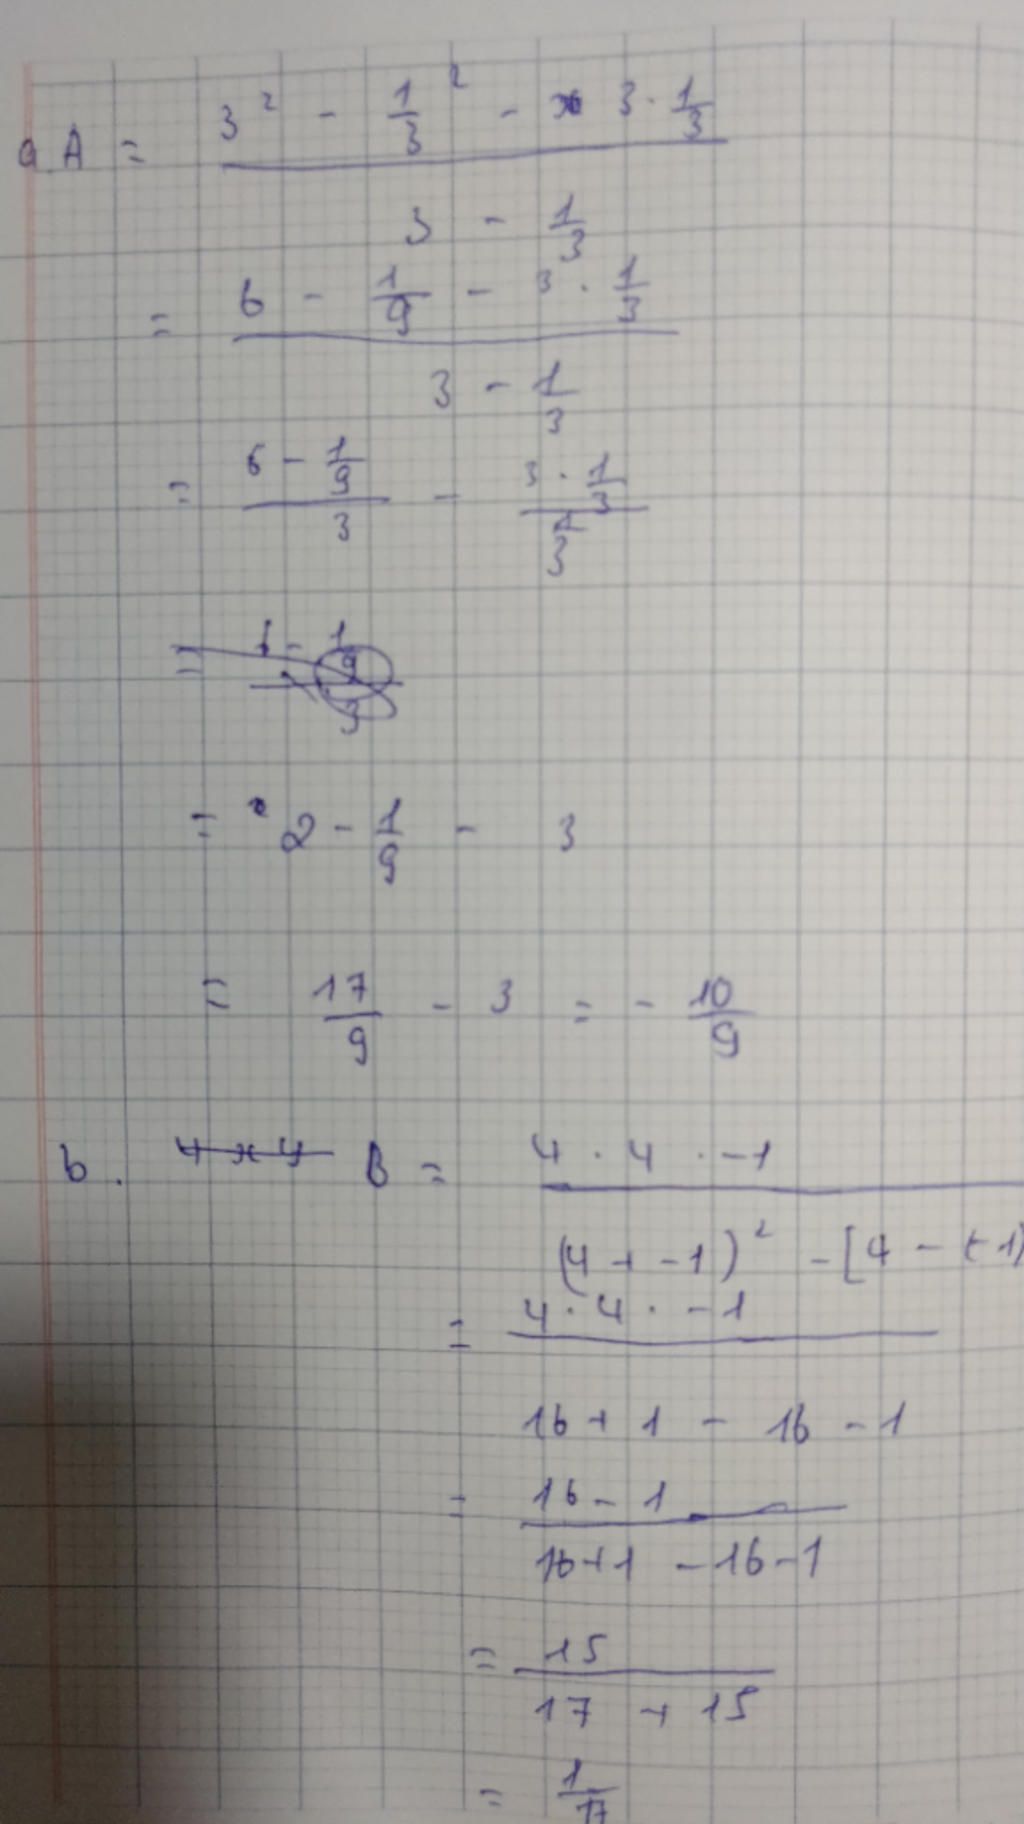 a A = (3² - 1/3² - 3 · 1/3) / (3 - 1/3)
= (6 - 1/9 - 3 · 1/3) / (3 - 1/3)
= (6 - 1/9) / 3 - (3 · 1/3) / (1/3)
= 2 - 1/9 - 3
= 17/9 - 3 = - 10/9
b. 4 x 4 B = (4 · 4 · -1) / ((4 + -1)² - [4 - (-1)
= (4 · 4 · -1) / (16 + 1 - 16 - 1)
= (16 - 1) / (16 + 1 - 16 - 1)
= 15 / (17 + 15)
= 1/17